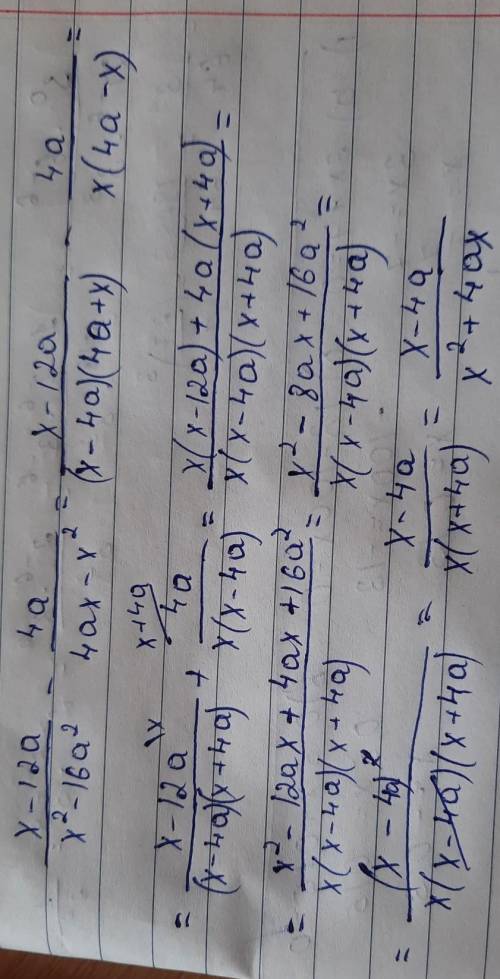 (x-12a)/(x²-16a²) - 4a/(4ax-x²) = (x-12a)/((x-4a)(4a+x)) - 4a/(x(4a-x)) =
= (x-12a)/((x-4a)(x+4a)) \x + 4a/(x(x-4a)) \x+4a = (x(x-12a)+4a(x+4a))/(x(x-4a)(x+4a)) =
= (x²-12ax+4ax+16a²)/(x(x-4a)(x+4a)) = (x²-8ax+16a²)/(x(x-4a)(x+4a)) =
= (x-4a)²/(x(x-4a)(x+4a)) = (x-4a)/(x(x+4a)) = (x-4a)/(x²+4ax)